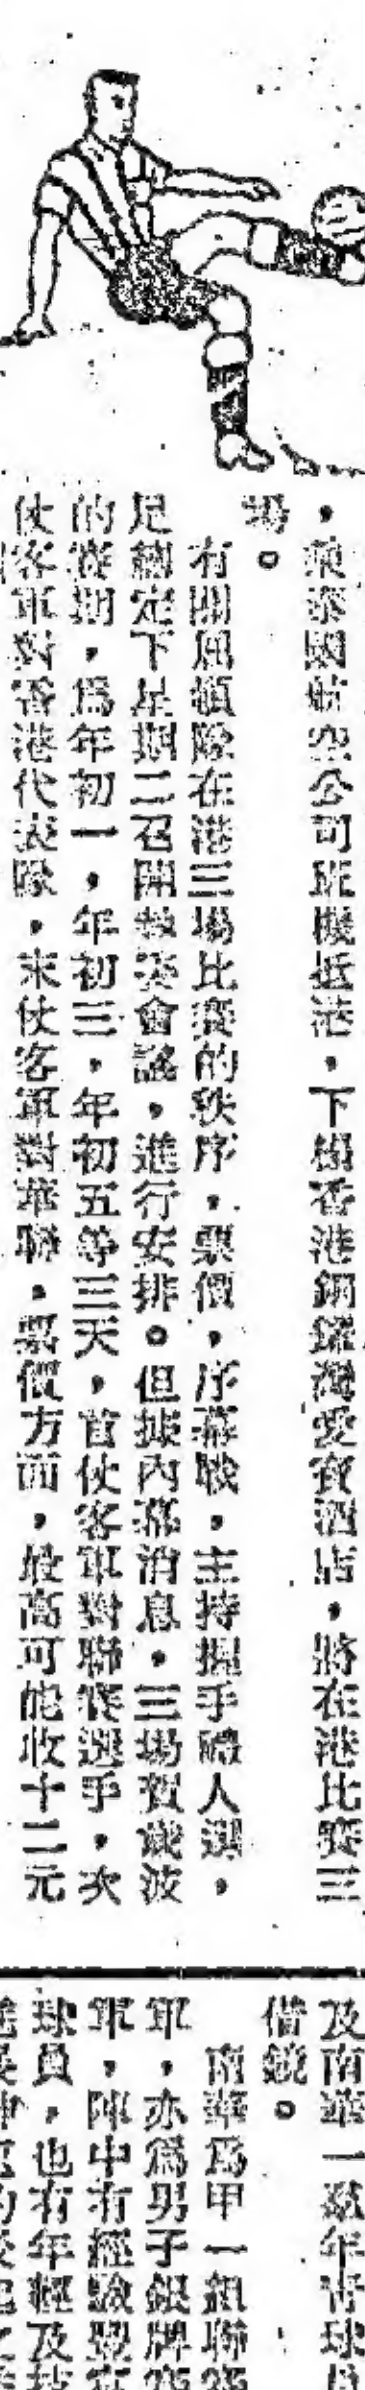 ，乘泰國航空公司班機抵港，下榻香港銅鑼灣愛寶酒店，將在港比賽三
場。
有關屈頓隊在港三場比賽的秩序，票價，序幕戰，主持握手禮人選，
足總定下星期二召開執委會議，進行安排。但據內幕消息，三場賀歲波
的賽期，爲年初一，年初三，年初五等三天，首仗客軍對聯賽選手，次
仗客軍對香港代表隊，末仗客軍對華聯，票價方面，最高可能收十二元
及南華一羣年青球員
借鏡。
南華爲甲一組聯賽
軍，亦爲男子銀牌賽
軍，陣中有經驗豐富
球員，也有年輕及技